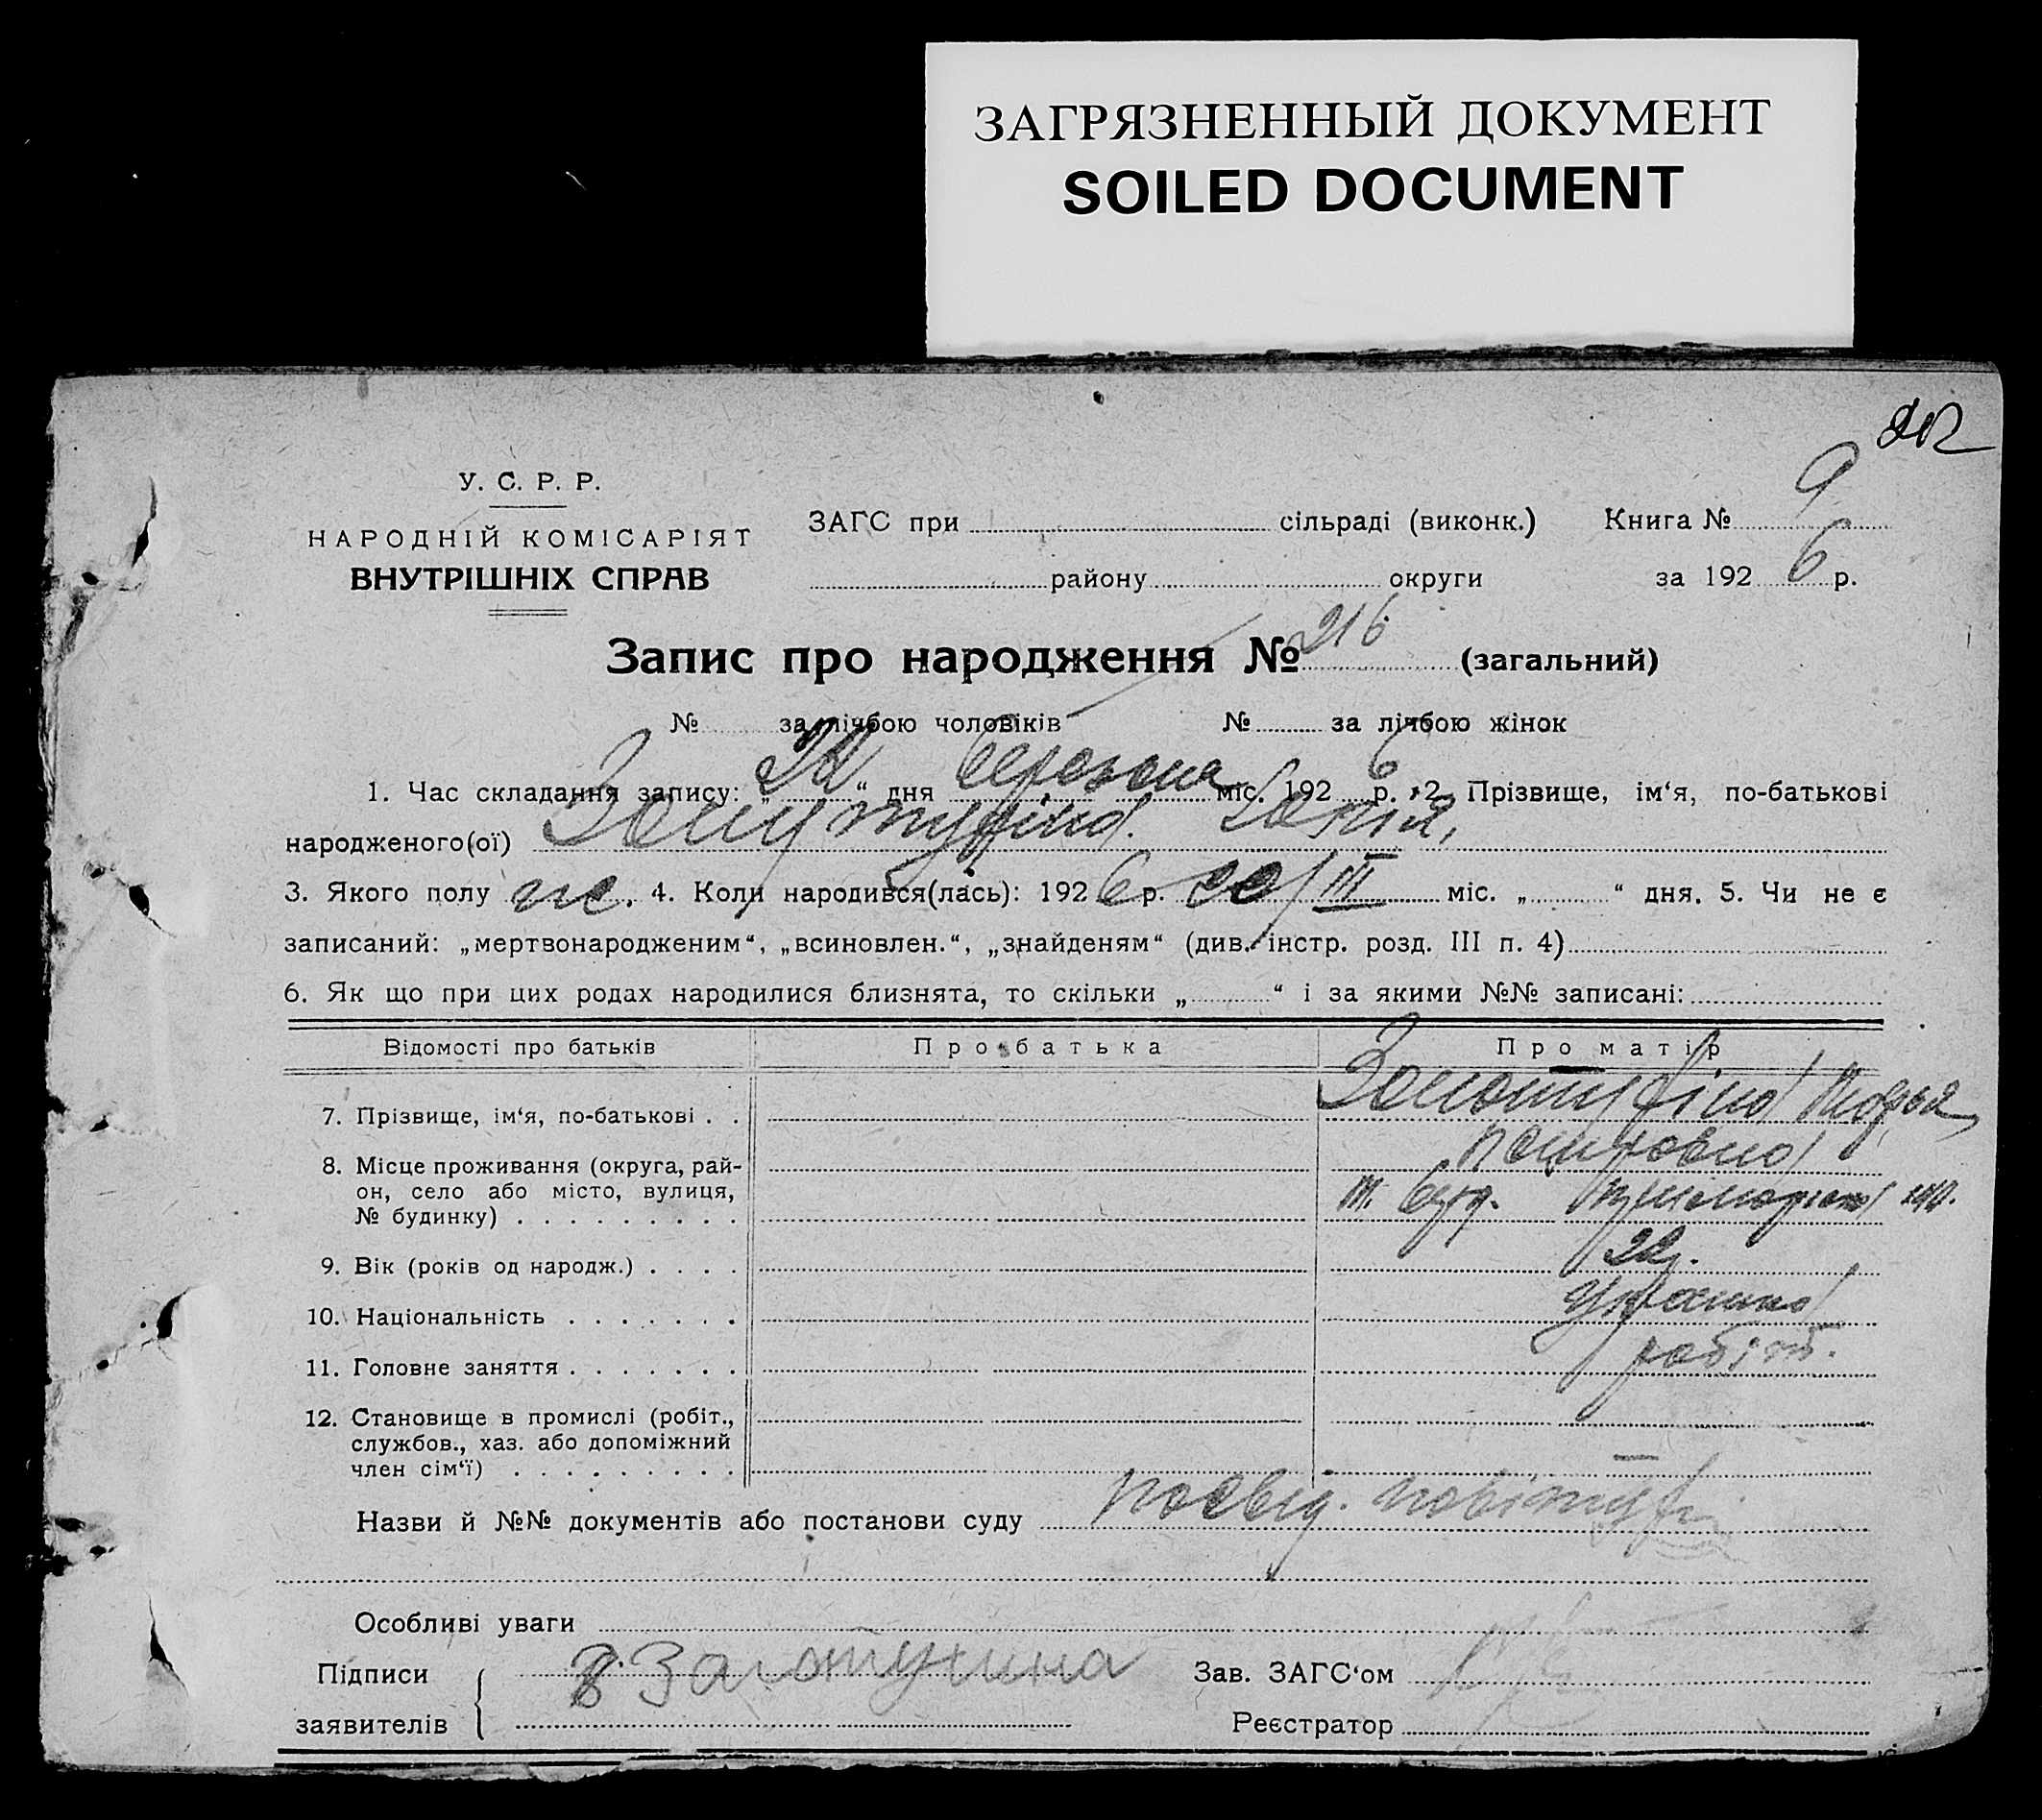 ЗАГРЯЗНЕННЫЙ ДОКУМЕНТ
SOILED DOCUMENT
У. С. Р. Р.
НАРОДНІЙ КОМІСАРІЯТ
ВНУТРІШНІХ СПРАВ
ЗАГС при сільраді (виконк.)
району округи
Книга № 9
за 1926 р.
Запис про народження № 216 (загальний)
№ за лічбою чоловіків № за лічбою жінок
1. Час складання запису: „22“ дня березня міс. 1926 р. 2. Прізвище, ім‘я, по-батькові
народженого(ої)
3. Якого полу ж. 4. Коли народився(лась): 1926 р. /III міс. „ “ дня. 5. Чи не є
записаний: „мертвонародженим“, „всиновлен.“, „знайденям“ (див. інстр. розд. III п. 4)
6. Як що при цих родах народилися близнята, то скільки „ “ і за якими №№ записані:
Відомості про батьків Про батька Про матір
7. Прізвище, ім‘я, по-батькові . .
Петровна
8. Місце проживання (округа, рай-
он, село або місто, вулиця,
№ будинку) . . . . . . . . .
9. Вік (років од народж.) . . . . 22
10. Національність . . . . . . .
11. Головне заняття . . . . . . . робіт.
12. Становище в промислі (робіт.,
службов., хаз. або допоміжний
член сім‘ї) . . . . . . . . . —
Назви й №№ документів або постанови суду посвід.
Особливі уваги
Підписи
заявителів
Зав. ЗАГС‘ом
Реєстратор